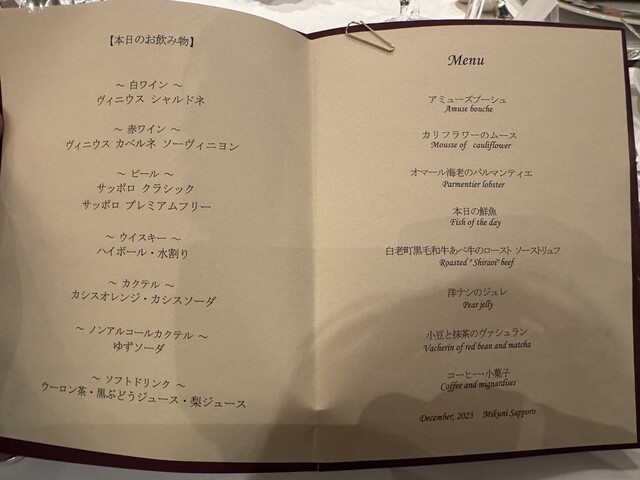 【本日のお飲み物】
～ 白ワイン ～
ヴィニウス シャルドネ
～ 赤ワイン ～
ヴィニウス カベルネ ソーヴィニヨン
～ ビール ～
サッポロ クラシック
サッポロ プレミアムフリー
～ ウイスキー ～
ハイボール・水割り
～ カクテル ～
カシスオレンジ・カシスソーダ
～ ノンアルコールカクテル ～
ゆずソーダ
～ ソフトドリンク ～
ウーロン茶・黒ぶどうジュース・梨ジュース
Menu
アミューズブーシュ
Amuse bouche
カリフラワーのムース
Mousse of cauliflower
オマール海老のパルマンティエ
Parmentier lobster
本日の鮮魚
Fish of the day
白老町黒毛和牛あべ牛のロースト ソーストリュフ
Roasted "Shiraoi" beef
洋ナシのジュレ
Pear jelly
小豆と抹茶のヴァシュラン
Vacherin of red bean and matcha
コーヒー・小菓子
Coffee and mignardises
December, 2023 Mikuni Sapporo